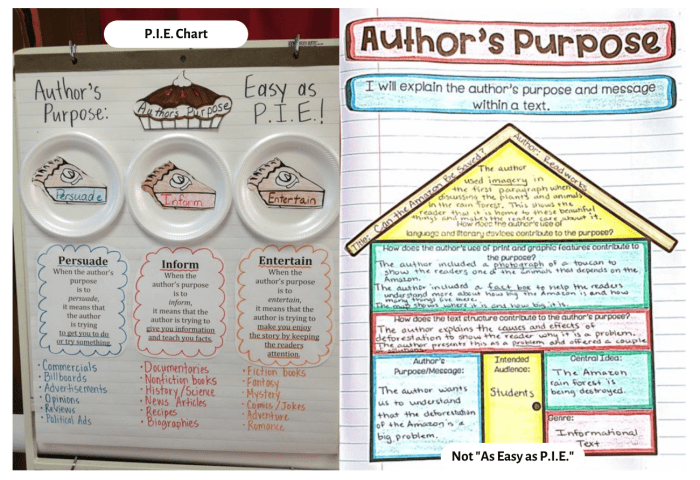 P.I.E. Chart
Author's
Purpose:
Authors Purpose
Easy as
P.I.E.!
Persuade
Inform
Entertain
Persuade
When the author's
purpose
is to
persuade,
it means that
the author
is trying
to get you to do
or try something.
Inform
When the
author's purpose
is to
inform,
it means that
the author is trying to
give you information
and teach you facts.
Entertain
When the
author's purpose
is to
entertain,
it means that the
author is trying to
make you enjoy
the story by keeping
the readers
attention.
• Commercials
• Billboards
• Advertisements
• Opinions
• Reviews
• Political Ads
• Documentaries
• Nonfiction books
• History/Science
• News Articles
• Recipes
• Biographies
• Fiction books
• Fantasy
• Mystery
• Comics/Jokes
• Adventure
• Romance
Author's Purpose
I will explain the author's purpose and message
within a text.
Title: Can the Amazon Be Saved?
Author: Readworks
The author
used imagery in
the first paragraph when
discussing the plants and animals
in the rain forest. This shows the
reader that it is home to these beautiful
things and makes the reader care about it.
How does the author's use of
language and literary devices contribute to the purpose?
How does the author's use of print and graphic features contribute to
the purpose?
The author included a photograph of a toucan to
show the readers one of the animals that depends on the
Amazon.
The author included a fact box to help the readers
understand more about how big the Amazon is and how
many things live there.
The map shows where it is and how big it is.
How does the text structure contribute to the purpose?
The author explains the causes and effects of
deforestation to show the reader why it is a problem.
The author presents this as a problem and offered a couple
Author's
Purpose/Message:
The author wants
us to understand
that the deforestation
of the Amazon is a
big problem.
Intended
Audience:
Students
Central Idea:
The Amazon
rain forest is
being destroyed.
Genre:
Informational
Text
Not "As Easy as P.I.E."